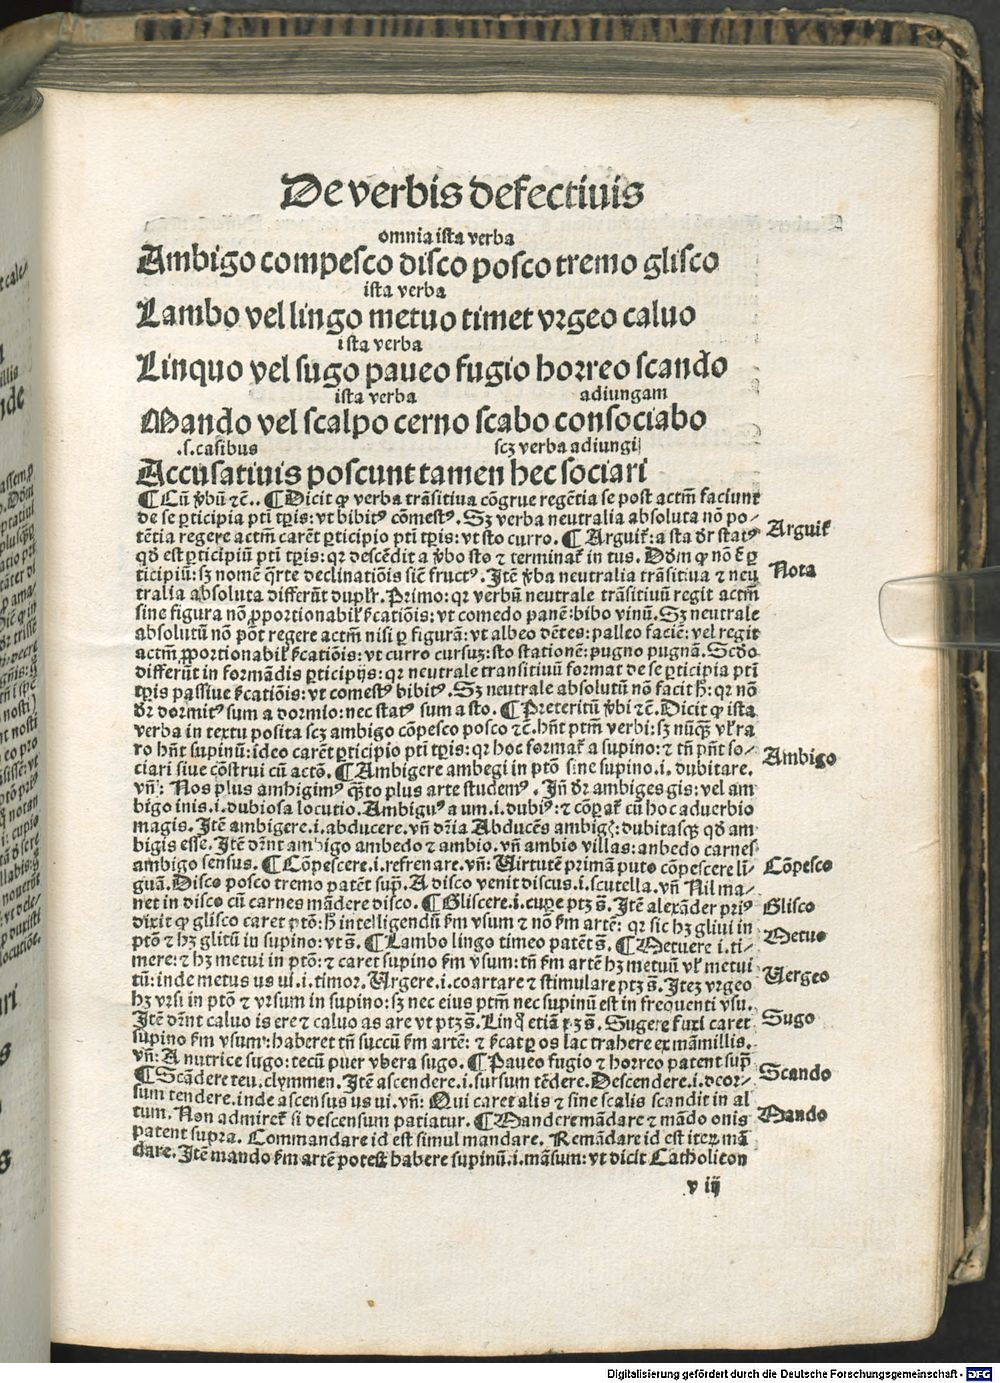 De verbis defectiuis
omnia ista verba
Ambigo compesco disco posco tremo glisco
ista verba
Lambo vel lingo metuo timet vrgeo caluo
ista verba
Linquo vel sugo paueo fugio horreo scando
ista verba adiungam
Mando vel scalpo cerno scabo consociabo
.s.casibus scz verba adiungi
Accusatiuis poscunt tamen hec sociari
¶ Cū ꝟbū ⁊c̄.. ¶ Dicit ꝙ verba trāsitiua cōgrue regētia se post actm̄ faciunt
de se ꝑticipia pti tꝑis: vt bibitꝰ cōmestꝰ. Sꝫ verba neutralia absoluta nō po-
tētia regere actm̄ carēt ꝑticipio pti tꝑis: vt sto curro. ¶ Arguit̄: a sta dr̄ statꝰ
qd̄ est ꝑticipiū pti tꝑis: qr descēdit a ꝟbo sto ⁊ terminat̄ in tus. Dōm ꝙ nō ē ꝑ
ticipiū: sꝫ nomē q̄rte declinatiōis sic̄ fructꝰ. Itē ꝟba neutralia trāsitiua ⁊ neu
tralia absoluta differūt duplr̄. Primo: qr verbū neutrale trāsitiuū regit actm̄
sine figura nō ꝓportionabil̄ s̄catiōis: vt comedo panē: bibo vinū. Sꝫ neutrale
absolutū nō pōt regere actm̄ nisi ꝑ figurā: vt albeo dētes: palleo faciē: vel regit
actm̄ ꝓportionabil̄ s̄catiōis: vt curro cursuꝫ: sto stationē: pugno pugnā. Scd̄o
differūt in formādis ꝑticipijs: qr neutrale transitiuū format de se ꝑticipia pti
tꝑis passiue s̄catiōis: vt comestꝰ bibitꝰ. Sꝫ neutrale absolutū nō facit h̄: qr nō
dr̄ dormitꝰ sum a dormio: nec statꝰ sum a sto. ¶ Preteritū ꝟbi ⁊c̄. Dicit ꝙ ista
verba in textu posita scꝫ ambigo cōpesco posco ⁊c̄. hn̄t ptm̄ verbi: sꝫ nūq̄ꝫ vl̄ ra
ro hn̄t supinū: ideo carēt ꝑticipio pti tꝑis: qr hoc format̄ a supino: ⁊ tn̄ pn̄t so-
ciari siue cōstrui cū actō. ¶ Ambigere ambegi in ptō sine supino .i. dubitare.
vn̄: Nos plus ambigimꝰ q̄sto plus arte studemꝰ. Jn̄ dr̄ ambiges gis: vel am
bigo inis .i. dubiosa locutio. Ambiguꝰ a um .i. dubiꝰ: ⁊ cōꝑat̄ cū hoc aduerbio
magis. Itē ambigere .i. abducere. vn̄ dr̄ia Abducēs ambigit: dubitasqꝫ qd̄ am
bigis esse. Itē dr̄nt ambigo ambedo ⁊ ambio. vn̄ ambio villas: anbedo carnes
ambigo sensus. ¶ Cōpescere .i. refrenare. vn̄: Uirtutē primā puto cōpescere lī-
guā. Disco posco tremo patēt supͣ. A disco venit discus .i. scutella. vn̄ Nil ma-
net in disco cū carnes mādere disco. ¶ Gliscere .i. cuꝑe ptꝫ s̄. Itē alexāder priꝰ
dixit ꝙ glisco caret ptō: h̄ intelligendū s̄m vsum ⁊ nō s̄m artē: qr sic hꝫ gliui in
ptō ⁊ hꝫ glitū in supino: vt s̄. ¶ Lambo lingo timeo patēt s̄. ¶ Metuere .i. ti-
mere: ⁊ hꝫ metui in ptō: ⁊ caret supino s̄m vsum: tn̄ s̄m artē hꝫ metuū vl̄ metui
tū: inde metus us ui .i. timor. Urgere .i. coartare ⁊ stimulare ptꝫ s̄. Iteꝫ vrgeo
hꝫ vrsi in ptō ⁊ vrsum in supino: sꝫ nec eius ptm̄ nec supinū est in frequenti vsu.
Itē dr̄nt caluo is ere ⁊ caluo as are vt ptꝫ s̄. Linq̄ etiā ptꝫ s̄. Sugere suxi caret
supino s̄m vsum: haberet tn̄ succū s̄m artē: ⁊ s̄cat ꝑ os lac trahere ex māmillis.
vn̄: A nutrice sugo: tecū puer vbera sugo. ¶ Paueo fugio ⁊ horreo patent supͣ
¶ Scādere teu. clymmen. Itē ascendere .i. sursum tēdere. Descendere .i. deor-
sum tendere. inde ascensus us ui. vn̄: Qui caret alis ⁊ sine scalis scandit in al
tum. Non admiret̄ si descensum patiatur. ¶ Mandere mādere ⁊ mādo onis
patent supra. Commandare id est simul mandare. Remādare id est iteꝝ mā
dare. Itē mando s̄m artē potest habere supinū .i. māsum: vt dicit Catholicon
v iij
Arguit̄
Nota
Ambigo
Cōpesco
Glisco
Metuo
Uergeo
Sugo
Scando
Mando
Digitalisierung gefördert durch die Deutsche Forschungsgemeinschaft - DFG